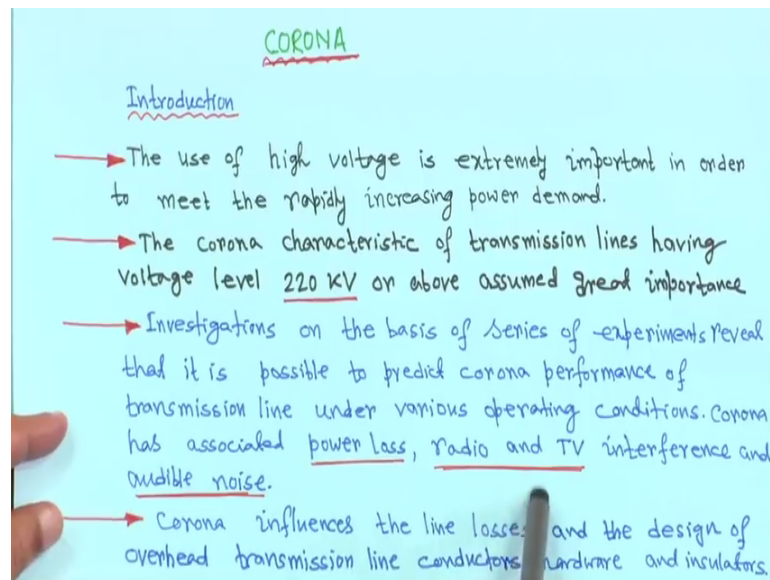 CORONA
Introduction
The use of high voltage is extremely important in order
to meet the rapidly increasing power demand.
The corona characteristic of transmission lines having
voltage level 220 KV or above assumed great importance
Investigations on the basis of series of experiments reveal
that it is possible to predict corona performance of
transmission line under various operating conditions. Corona
has associated power loss, radio and TV interference and
audible noise.
Corona influences the line losses and the design of
overhead transmission line conductors hardware and insulators.